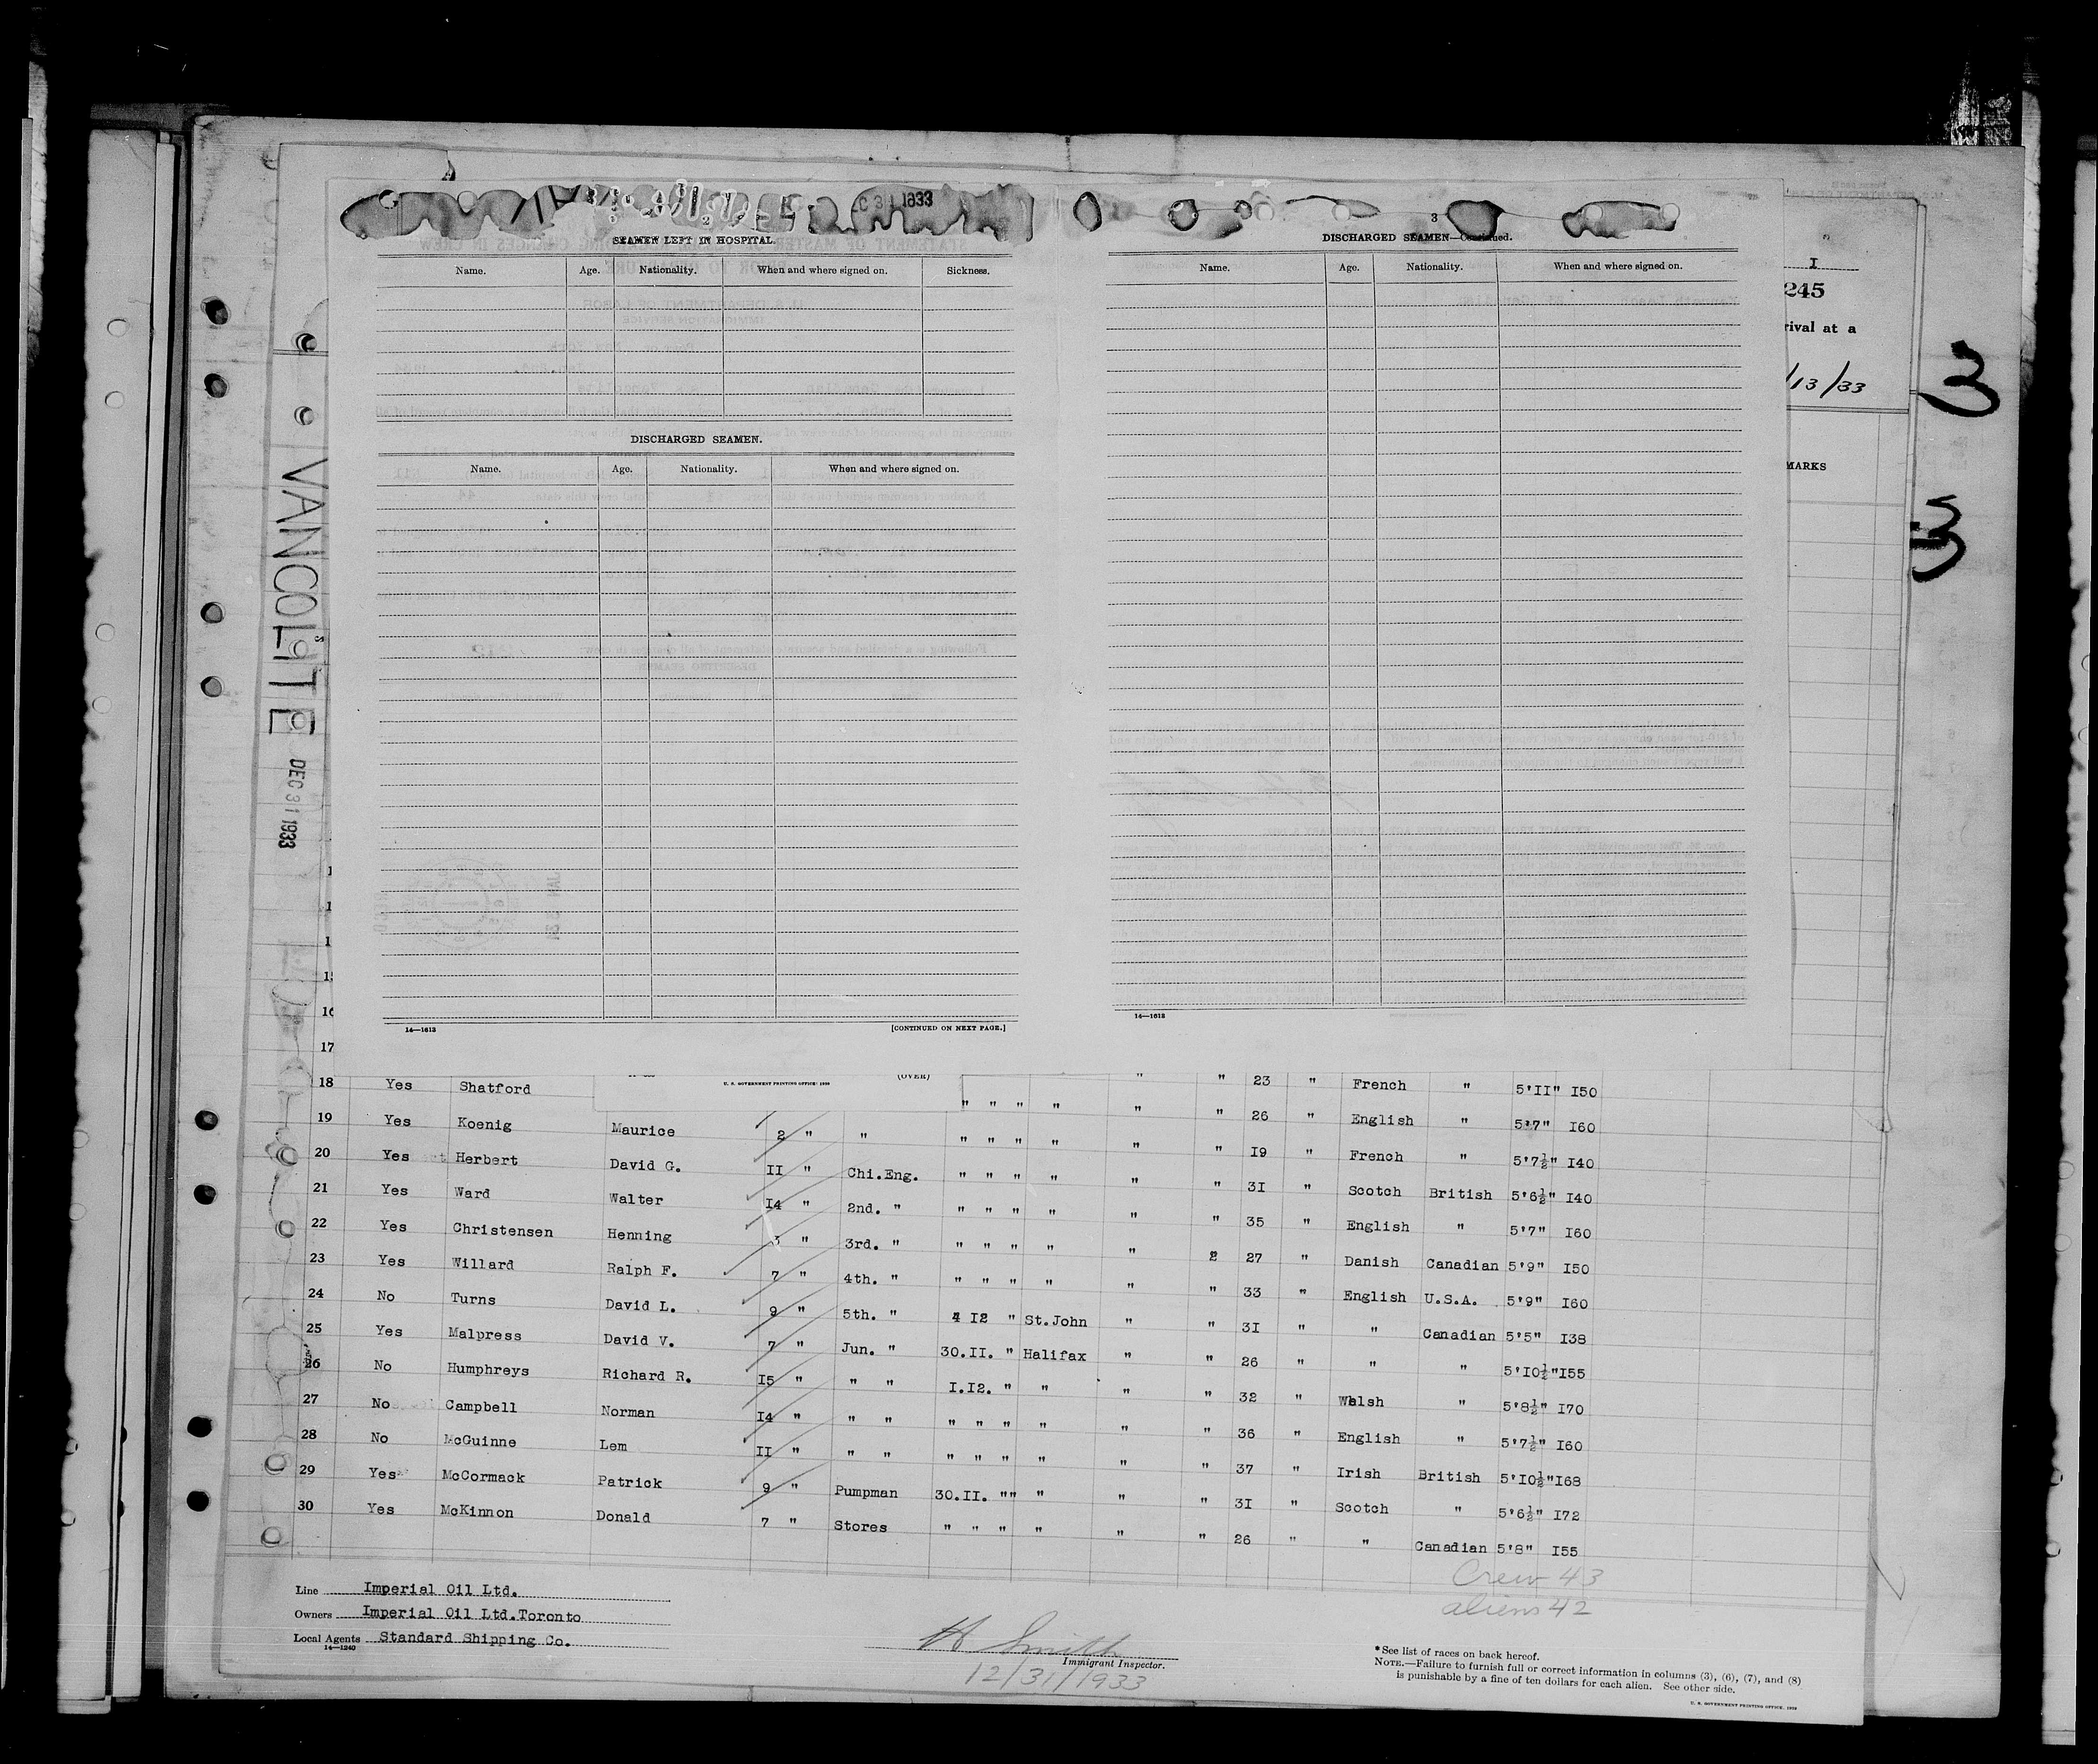 C 31 1933
SEAMEN LEFT IN HOSPITAL.
Name. Age. Nationality. When and where signed on. Sickness.
DISCHARGED SEAMEN.
Name. Age. Nationality. When and where signed on.
14—1613 [CONTINUED ON NEXT PAGE.]
3
DISCHARGED SEAMEN—Continued.
Name. Age. Nationality. When and where signed on.
14—1613
I
245
rival at a
/13/33
MARKS
3
3
VANCOLITE
DEC 31 1933
16
17 " " 23 " French " 5'II" I50
U. S. GOVERNMENT PRINTING OFFICE: 1933 (OVER)
18 Yes Shatford " " " " " " 26 " English " 5'7" I60
19 Yes Koenig Maurice 2 " " " " " " " " I9 " French " 5'7½" I40
20 Yes Herbert David G. II " Chi.Eng. " " " " " " 3I " Scotch British 5'6½" I40
21 Yes Ward Walter I4 " 2nd. " " " " " " " 35 " English " 5'7" I60
22 Yes Christensen Henning 3 " 3rd. " " " " " " 2 27 " Danish Canadian 5'9" I50
23 Yes Willard Ralph F. 7 " 4th. " " " " " " " 33 " English U.S.A. 5'9" I60
24 No Turns David L. 9 " 5th. " 4 I2 " St.John " " 3I " " Canadian 5'5" I38
25 Yes Malpress David V. 7 " Jun. " 30.II. " Halifax " " 26 " " " 5'I0½" I55
26 No Humphreys Richard R. I5 " " " I.I2. " " " " 32 " Walsh " 5'8½" I70
27 No Campbell Norman I4 " " " " " " " " " 36 " English " 5'7½" I60
28 No McGuinne Lem II " " " " " " " " " 37 " Irish British 5'I0½" I68
29 Yes McCormack Patrick 9 " Pumpman 30.II. "" " " " 3I " Scotch " 5'6½" I72
30 Yes McKinnon Donald 7 " Stores " " " " " " 26 " " Canadian 5'8" I55
Crew 43
aliens 42
Line Imperial Oil Ltd.
Owners Imperial Oil Ltd.Toronto
Local Agents Standard Shipping Co.
14—1240
H Smith
Immigrant Inspector.
12/31/1933
*See list of races on back hereof.
NOTE.—Failure to furnish full or correct information in columns (3), (6), (7), and (8)
is punishable by a fine of ten dollars for each alien. See other side.
U. S. GOVERNMENT PRINTING OFFICE: 1929